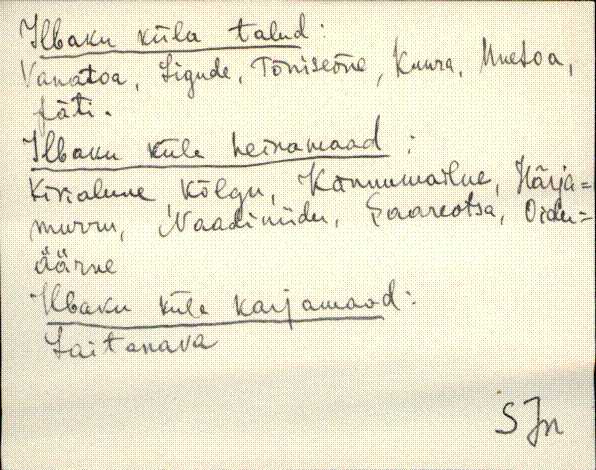 Ilbaku küla talud:
Vanatoa, Sigude, Tõniseõue, Kuura, Uuetoa,
Jäti.
Ilbaku küla heinamaad:
Kirialune Kõlgu, Kannumailue, Härja=
murru, Naadiniidu, Saareotsa, Oidu=
äärne
Ilbaku küla karjamaad:
Laitanava
S Jn